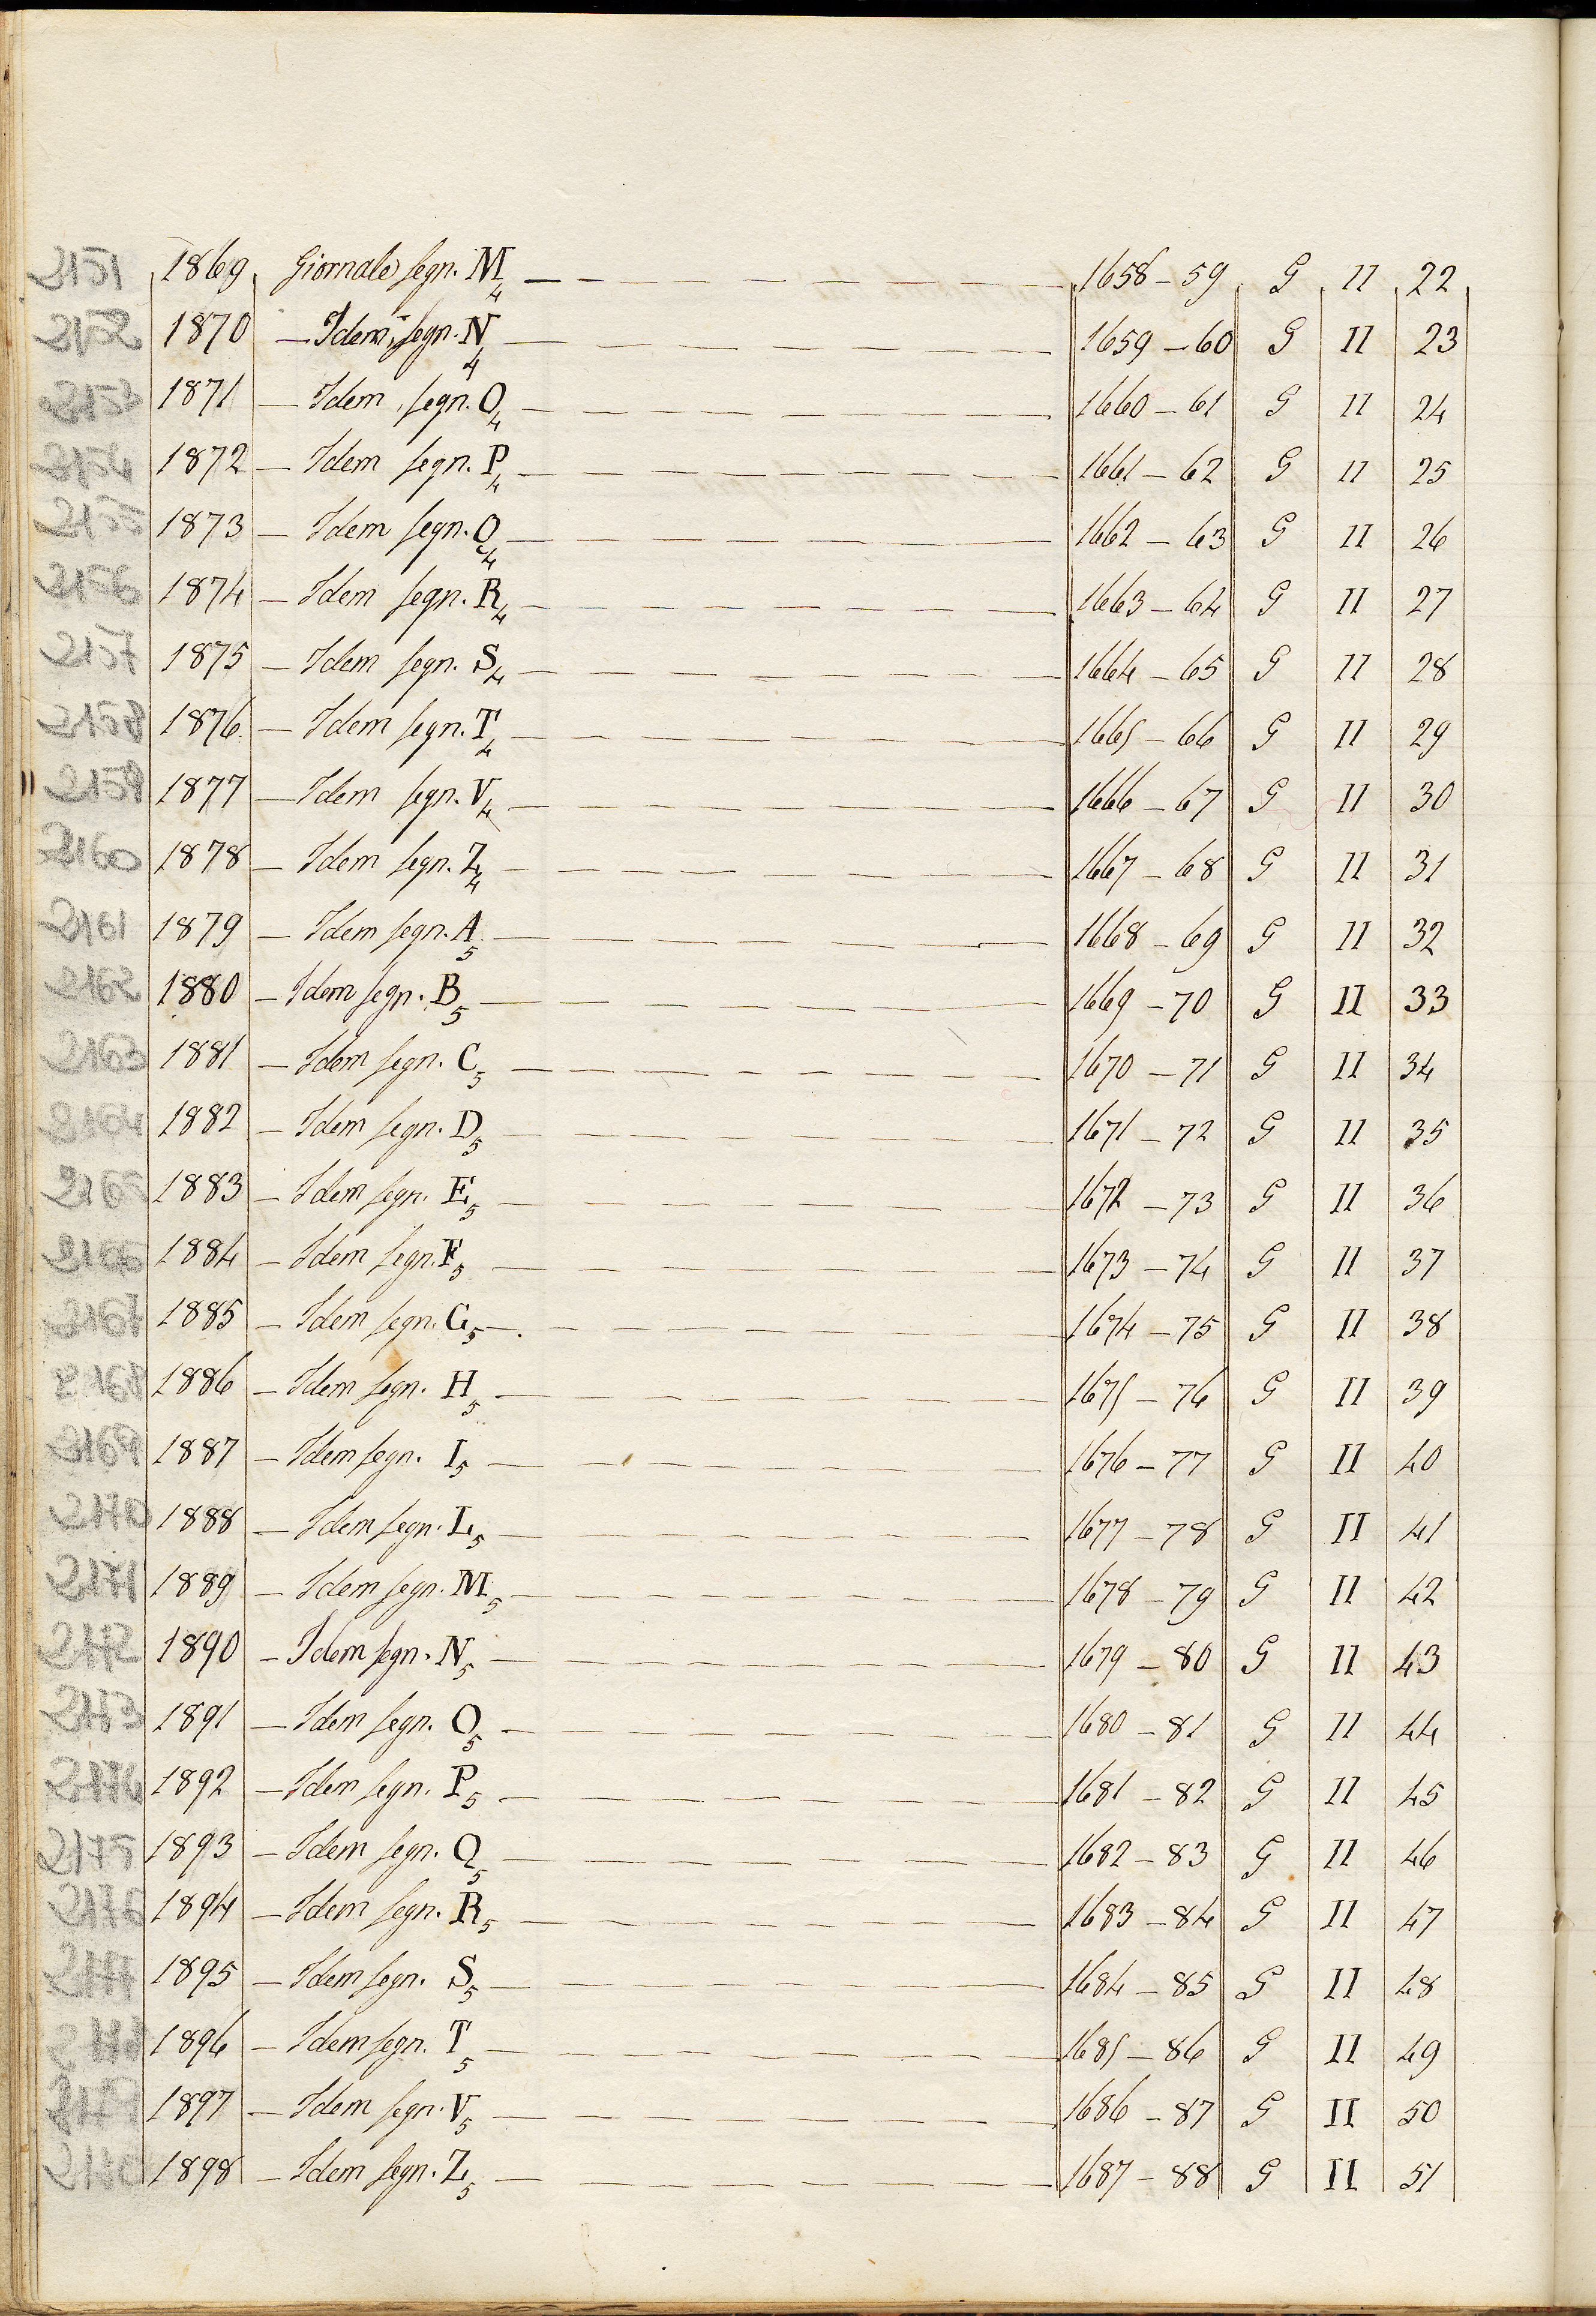 2151 1869 Giornale segn. M4 1658-59 G II 22
2152 1870 Idem, segn. N4 1659-60 G II 23
2153 1871 Idem, segn. O4 1660-61 G II 24
2154 1872 Idem segn. P4 1661-62 G II 25
2155 1873 Idem segn. Q4 1662-63 G II 26
2156 1874 Idem segn. R4 1663-64 G II 27
2157 1875 Idem segn. S4 1664-65 G II 28
2158 1876 Idem segn. T4 1665-66 G II 29
2159 1877 Idem segn. V4 1666-67 G II 30
2160 1878 Idem segn. Z4 1667-68 G II 31
2161 1879 Idem segn. A5 1668-69 G II 32
2162 1880 Idem segn. B5 1669-70 G II 33
2163 1881 Idem segn. C5 1670-71 G II 34
2164 1882 Idem segn. D5 1671-72 G II 35
2165 1883 Idem segn. E5 1672-73 G II 36
2166 1884 Idem segn. F5 1673-74 G II 37
2167 1885 Idem segn. G5 1674-75 G II 38
2168 1886 Idem segn. H5 1675-76 G II 39
2169 1887 Idem segn. I5 1676-77 G II 40
2170 1888 Idem segn. L5 1677-78 G II 41
2171 1889 Idem segn. M5 1678-79 G II 42
2172 1890 Idem segn. N5 1679-80 G II 43
2173 1891 Idem segn. O5 1680-81 G II 44
2174 1892 Idem segn. P5 1681-82 G II 45
2175 1893 Idem segn. Q5 1682-83 G II 46
2176 1894 Idem segn. R5 1683-84 G II 47
2177 1895 Idem segn. S5 1684-85 G II 48
2178 1896 Idem segn. T5 1685-86 G II 49
2179 1897 Idem segn. V5 1686-87 G II 50
2180 1898 Idem segn. Z5 1687-88 G II 51